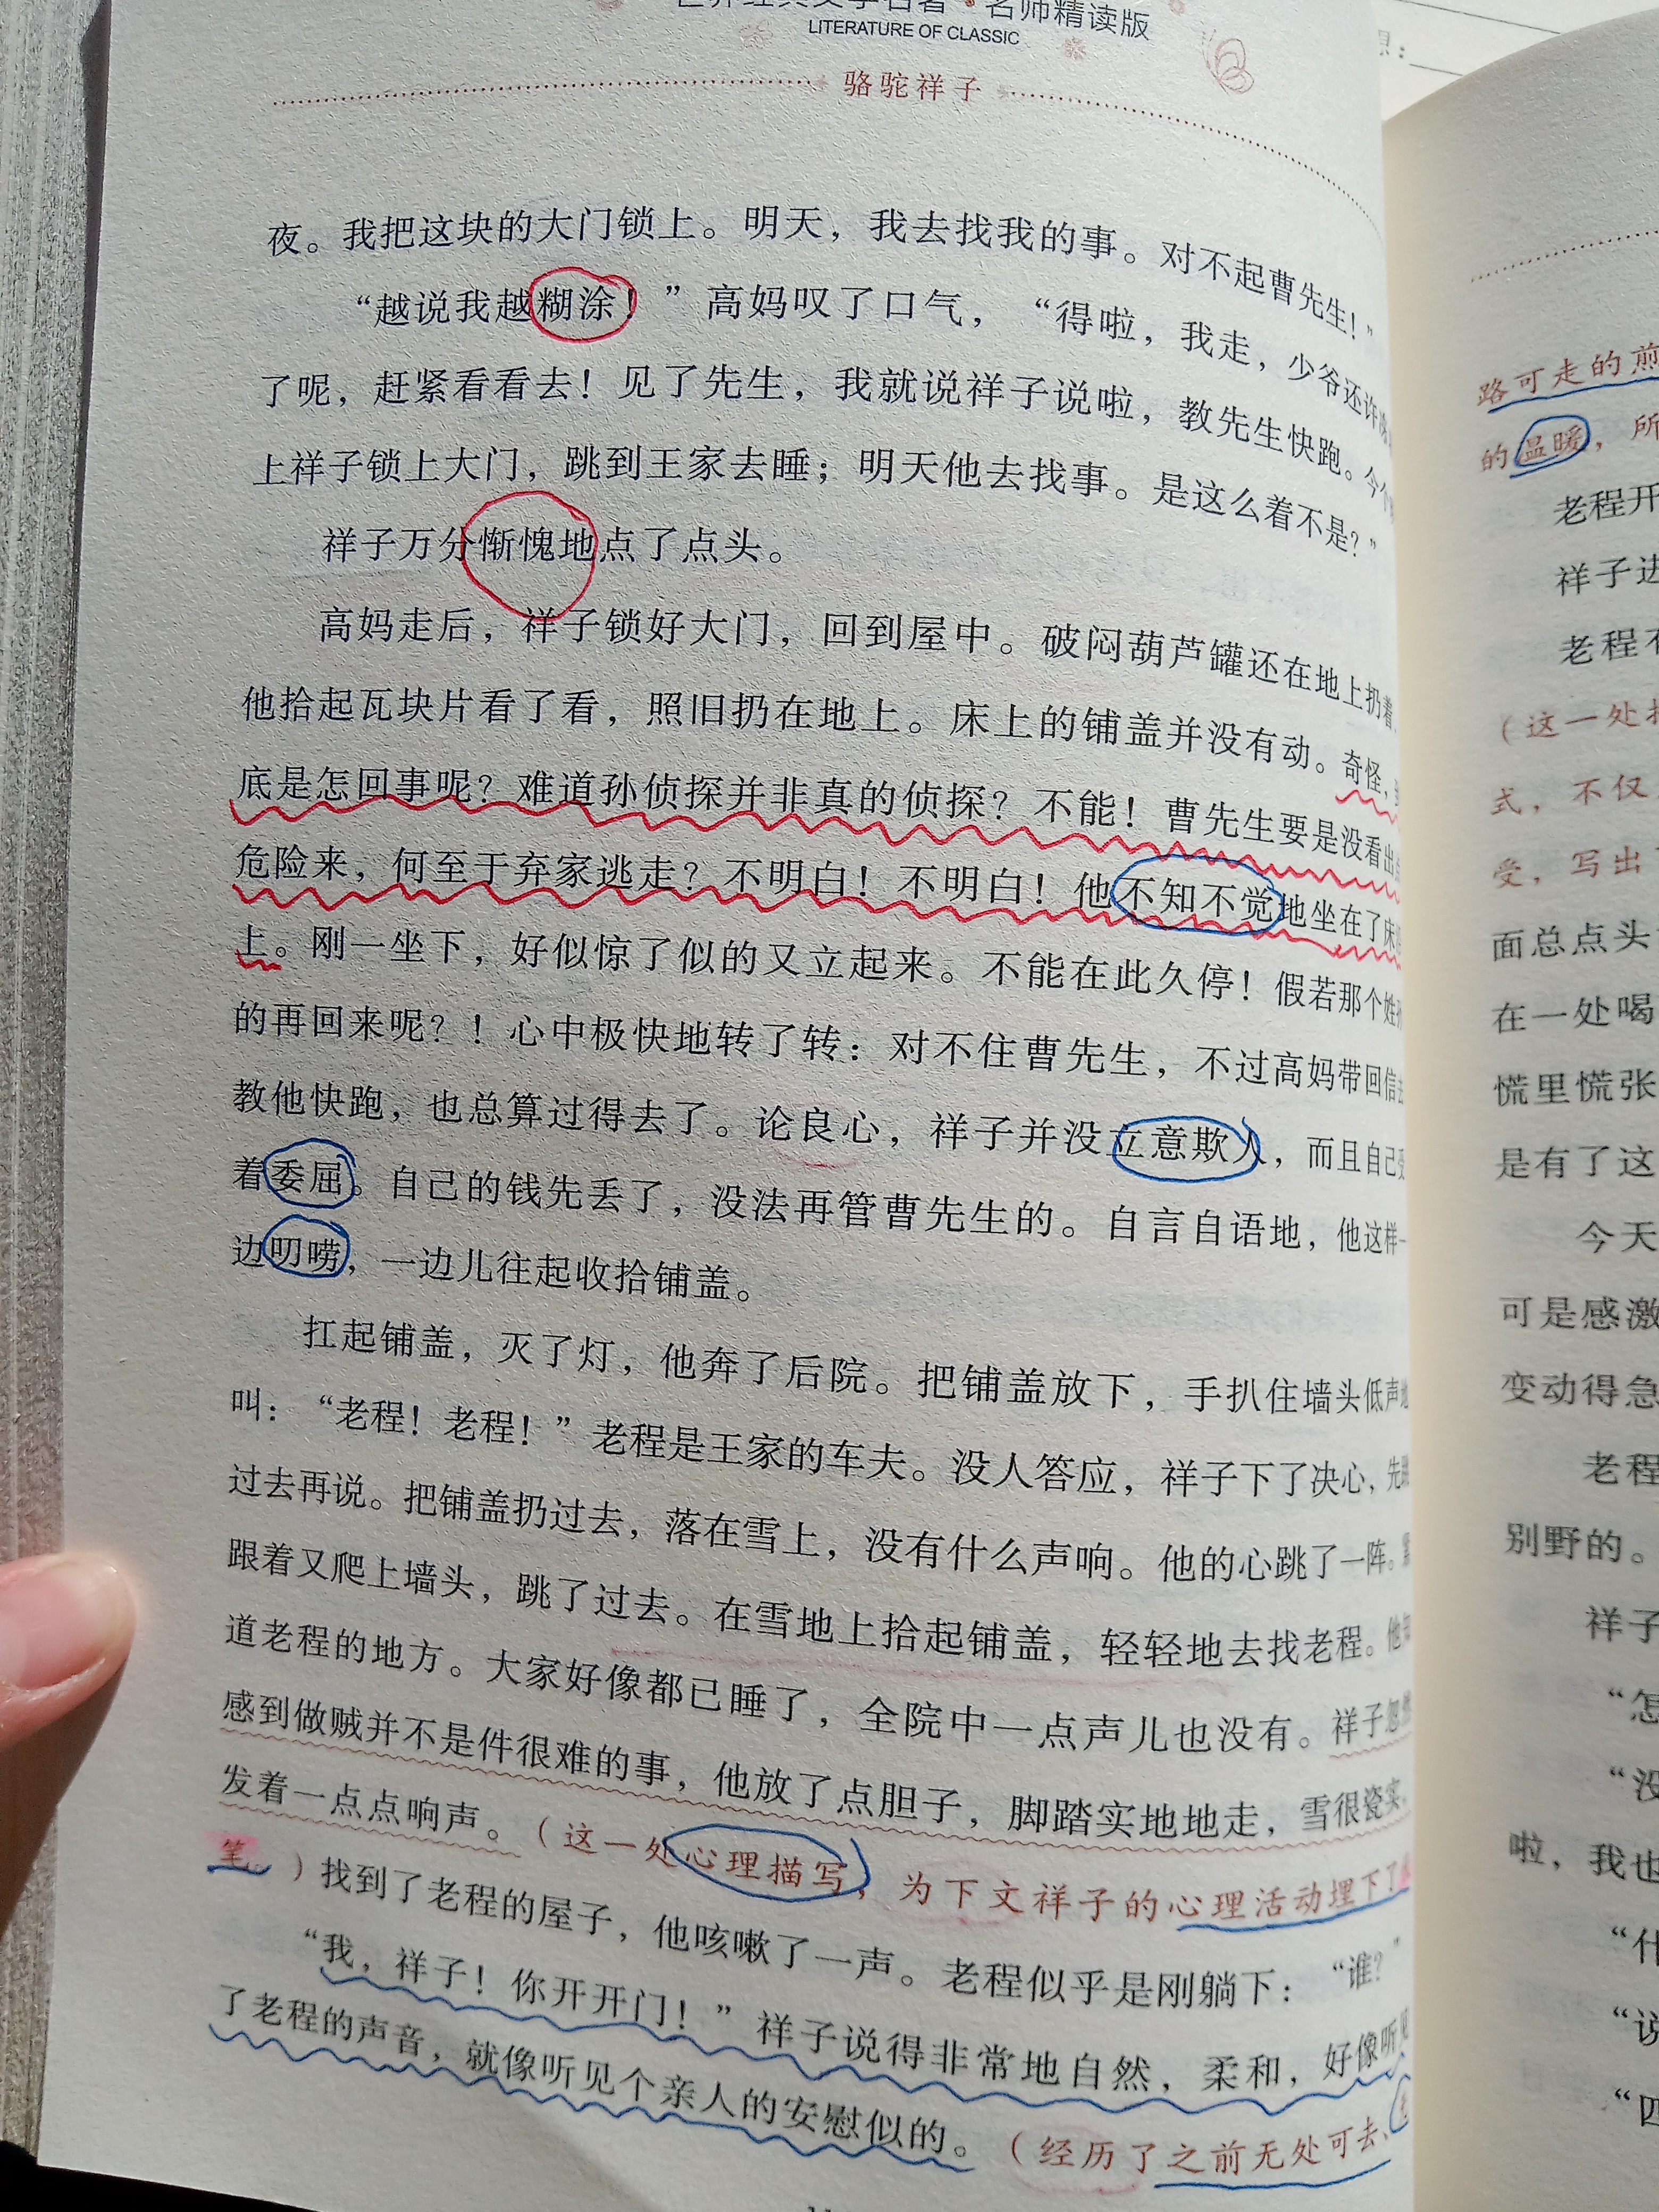 名师精读版
LITERATURE OF CLASSIC
骆驼祥子
夜。我把这块的大门锁上。明天，我去找我的事。对不起曹先生！”
“越说我越糊涂！”高妈叹了口气，“得啦，我走，少爷还许
了呢，赶紧看看去！见了先生，我就说祥子说啦，教先生快跑。今个
上祥子锁上大门，跳到王家去睡；明天他去找事。是这么着不是？”
祥子万分惭愧地点了点头。
高妈走后，祥子锁好大门，回到屋中。破闷葫芦罐还在地上扔着，
他拾起瓦块片看了看，照旧扔在地上。床上的铺盖并没有动。奇怪，
底是怎回事呢？难道孙侦探并非真的侦探？不能！曹先生要是没看出
危险来，何至于弃家逃走？不明白！不明白！他不知不觉地坐在了床
上。刚一坐下，好似惊了似的又立起来。不能在此久停！假若那个姓
的再回来呢？！心中极快地转了转：对不住曹先生，不过高妈带回信去
教他快跑，也总算过得去了。论良心，祥子并没立意欺人，而且自己
着委屈。自己的钱先丢了，没法再管曹先生的。自言自语地，他这样一
边叨唠，一边儿往起收拾铺盖。
扛起铺盖，灭了灯，他奔了后院。把铺盖放下，手扒住墙头低声地
叫：“老程！老程！”老程是王家的车夫。没人答应，祥子下了决心，先跳
过去再说。把铺盖扔过去，落在雪上，没有什么声响。他的心跳了一阵。
跟着又爬上墙头，跳了过去。在雪地上拾起铺盖，轻轻地去找老程。他
道老程的地方。大家好像都已睡了，全院中一点声儿也没有。祥子忽然
感到做贼并不是件很难的事，他放了点胆子，脚踏实地地走，雪很瓷实，
发着一点点响声。（这一处心理描写，为下文祥子的心理活动埋下了
笔。）找到了老程的屋子，他咳嗽了一声。老程似乎是刚躺下：“谁？”
“我，祥子！你开开门！”祥子说得非常地自然，柔和，好像听见
了老程的声音，就像听见个亲人的安慰似的。（经历了之前无处可去、
路可走的煎
的温暖，所
老程开
祥子进
老程
（这一处
式，不仅
受，写出
面总点头
在一处喝
慌里慌张
是有了这
今天
可是感激
变动得急
老程
别野的。
祥子
“怎
“没
啦，我也
“什
“说
“四